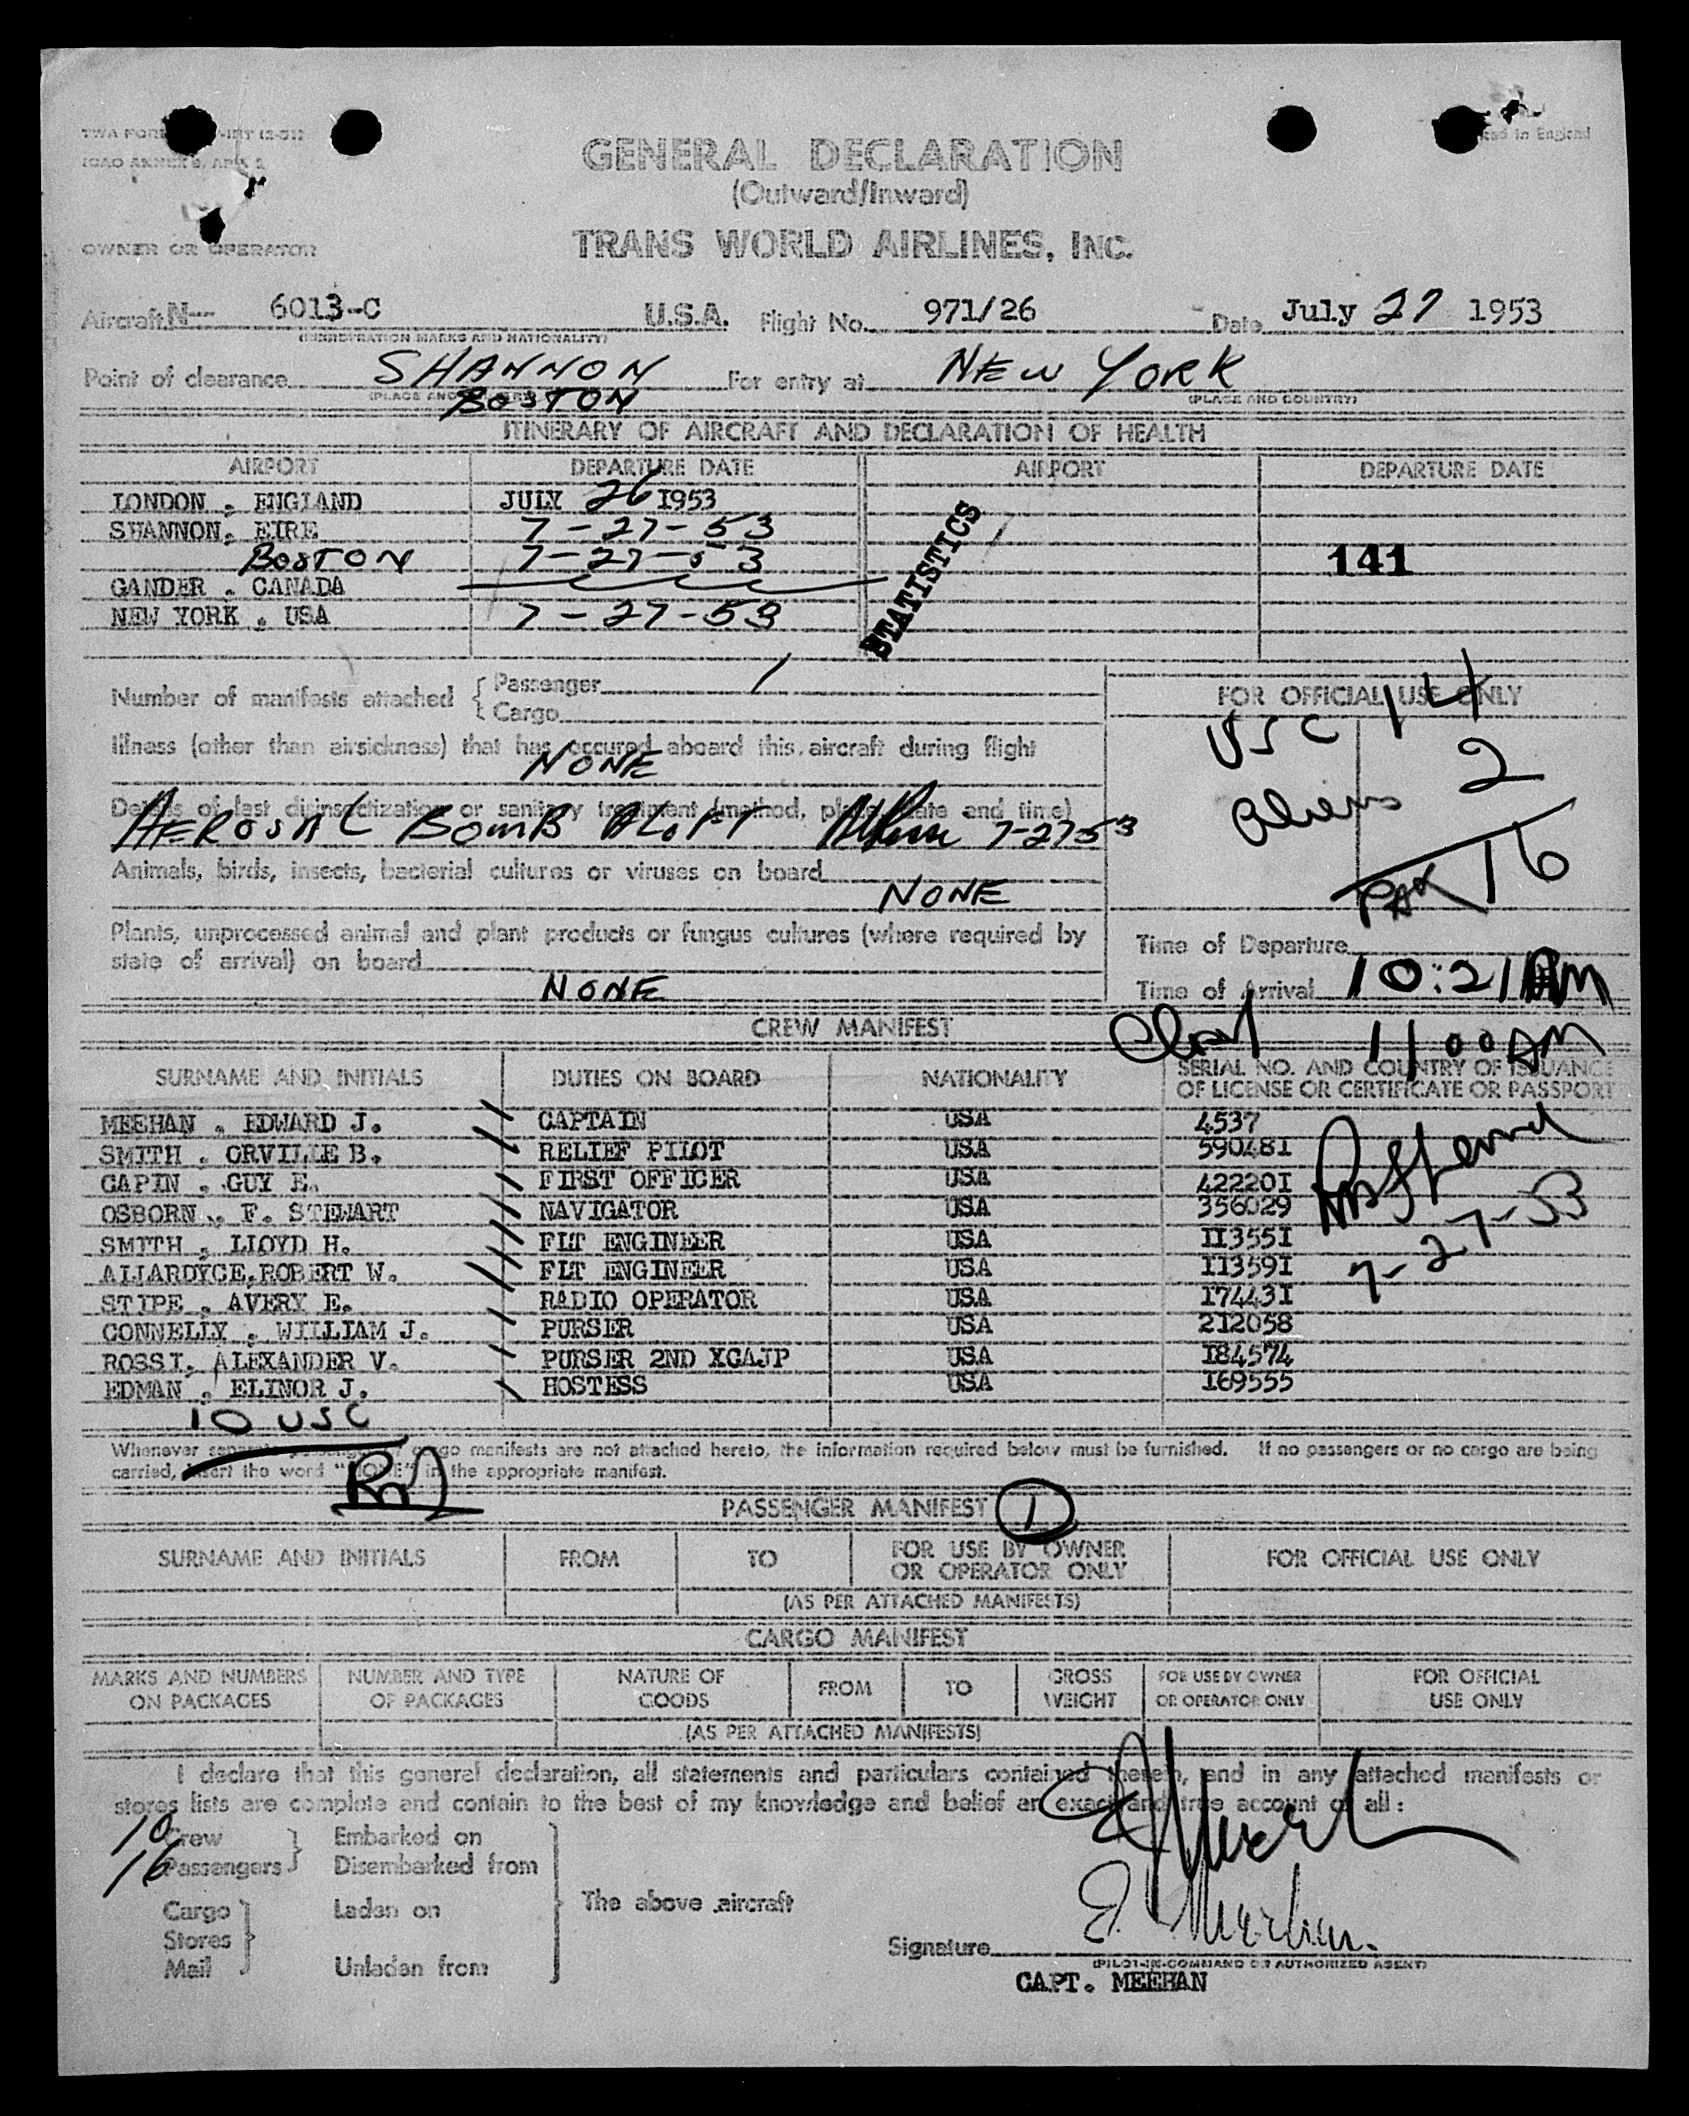 GENERAL DECLARATION
(Outward/Inward)
TRANS WORLD AIRLINES, INC.
OWNER OR OPERATOR
Aircraft N-- 6013-C U.S.A. Flight No. 971/26 Date July 27 1953
(REGISTRATION MARKS AND NATIONALITY)
Point of clearance SHANNON For entry at NEW YORK
BOSTON (PLACE AND COUNTRY)
ITINERARY OF AIRCRAFT AND DECLARATION OF HEALTH
AIRPORT DEPARTURE DATE AIRPORT DEPARTURE DATE
LONDON , ENGLAND JULY 26 1953
SHANNON, EIRE 7-27-53
BOSTON 7-27-53 141
GANDER , CANADA
NEW YORK , USA 7-27-53
STATISTICS
Number of manifests attached { Passenger 1
Cargo
FOR OFFICIAL USE ONLY
USC 14
Aliens 2
PAX 16
Illness (other than airsickness) that has occured aboard this aircraft during flight
NONE
Details of last disinsectization or sanitary treatment (method, place, date and time)
AEROSAL BOMB ALOFT 7-27-53
Animals, birds, insects, bacterial cultures or viruses on board
NONE
Plants, unprocessed animal and plant products or fungus cultures (where required by
state of arrival) on board
NONE
Time of Departure
Time of Arrival 10:21 AM
11 00 AM
CREW MANIFEST
SURNAME AND INITIALS DUTIES ON BOARD NATIONALITY SERIAL NO. AND COUNTRY OF ISSUANCE
OF LICENSE OR CERTIFICATE OR PASSPORT
MEEHAN , EDWARD J. CAPTAIN USA 4537
SMITH , ORVILLE B. RELIEF PILOT USA 590481
CAPIN , GUY E. FIRST OFFICER USA 422201
OSBORN , F. STEWART NAVIGATOR USA 356029
SMITH , LLOYD H. FLT ENGINEER USA 113551
ALLARDYCE,ROBERT W. FLT ENGINEER USA 113591
STIPE , AVERY E. RADIO OPERATOR USA 174431
CONNELLY , WILLIAM J. PURSER USA 212058
ROSSI, ALEXANDER V. PURSER 2ND XGAJP USA 184574
EDMAN , ELINOR J. HOSTESS USA 169555
7-27-53
10 USC
Whenever separate passenger or cargo manifests are not attached hereto, the information required below must be furnished. If no passengers or no cargo are being
carried, insert the word "NONE" in the appropriate manifest.
PASSENGER MANIFEST 1
SURNAME AND INITIALS FROM TO FOR USE BY OWNER
OR OPERATOR ONLY FOR OFFICIAL USE ONLY
(AS PER ATTACHED MANIFESTS)
CARGO MANIFEST
MARKS AND NUMBERS
ON PACKAGES NUMBER AND TYPE
OF PACKAGES NATURE OF
GOODS FROM TO GROSS
WEIGHT FOR USE BY OWNER
OR OPERATOR ONLY FOR OFFICIAL
USE ONLY
(AS PER ATTACHED MANIFESTS)
I declare that this general declaration, all statements and particulars contained therein, and in any attached manifests or
stores lists are complete and contain to the best of my knowledge and belief an exact and true account of all:
10 Crew Embarked on
16 Passengers Disembarked from
Cargo Laden on
Stores
Mail Unladen from
The above aircraft
E. Meehan
Signature
(PILOT-IN-COMMAND OR AUTHORIZED AGENT)
CAPT. MEEHAN